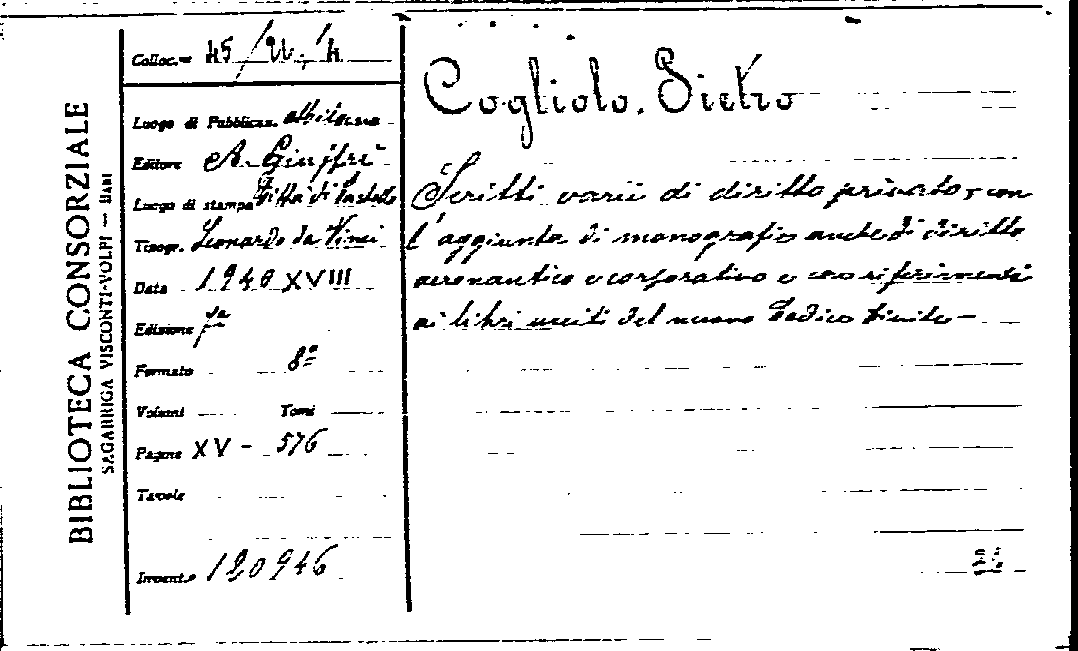 BIBLIOTECA CONSORZIALE
SAGARRIGA VISCONTI-VOLPI — BARI
Colloc.= 45/21/4
Luogo di Pubblicaz.
Editore A. Giuffrè
Luogo di stampa Città di Castello
Tipogr. Leonardo da Vinci
Data 1940 XVIII
Edizione
Formato 8º
Volumi Tomi
Pagine XV - 576
Tavole
Invent.º 120946
Cogliolo. Pietro
Scritti varii di diritto privato, con
l'aggiunta di monografie anche di diritto
aeronautico e corporativo e con riferimenti
ai libri usciti del nuovo Codice Civile –